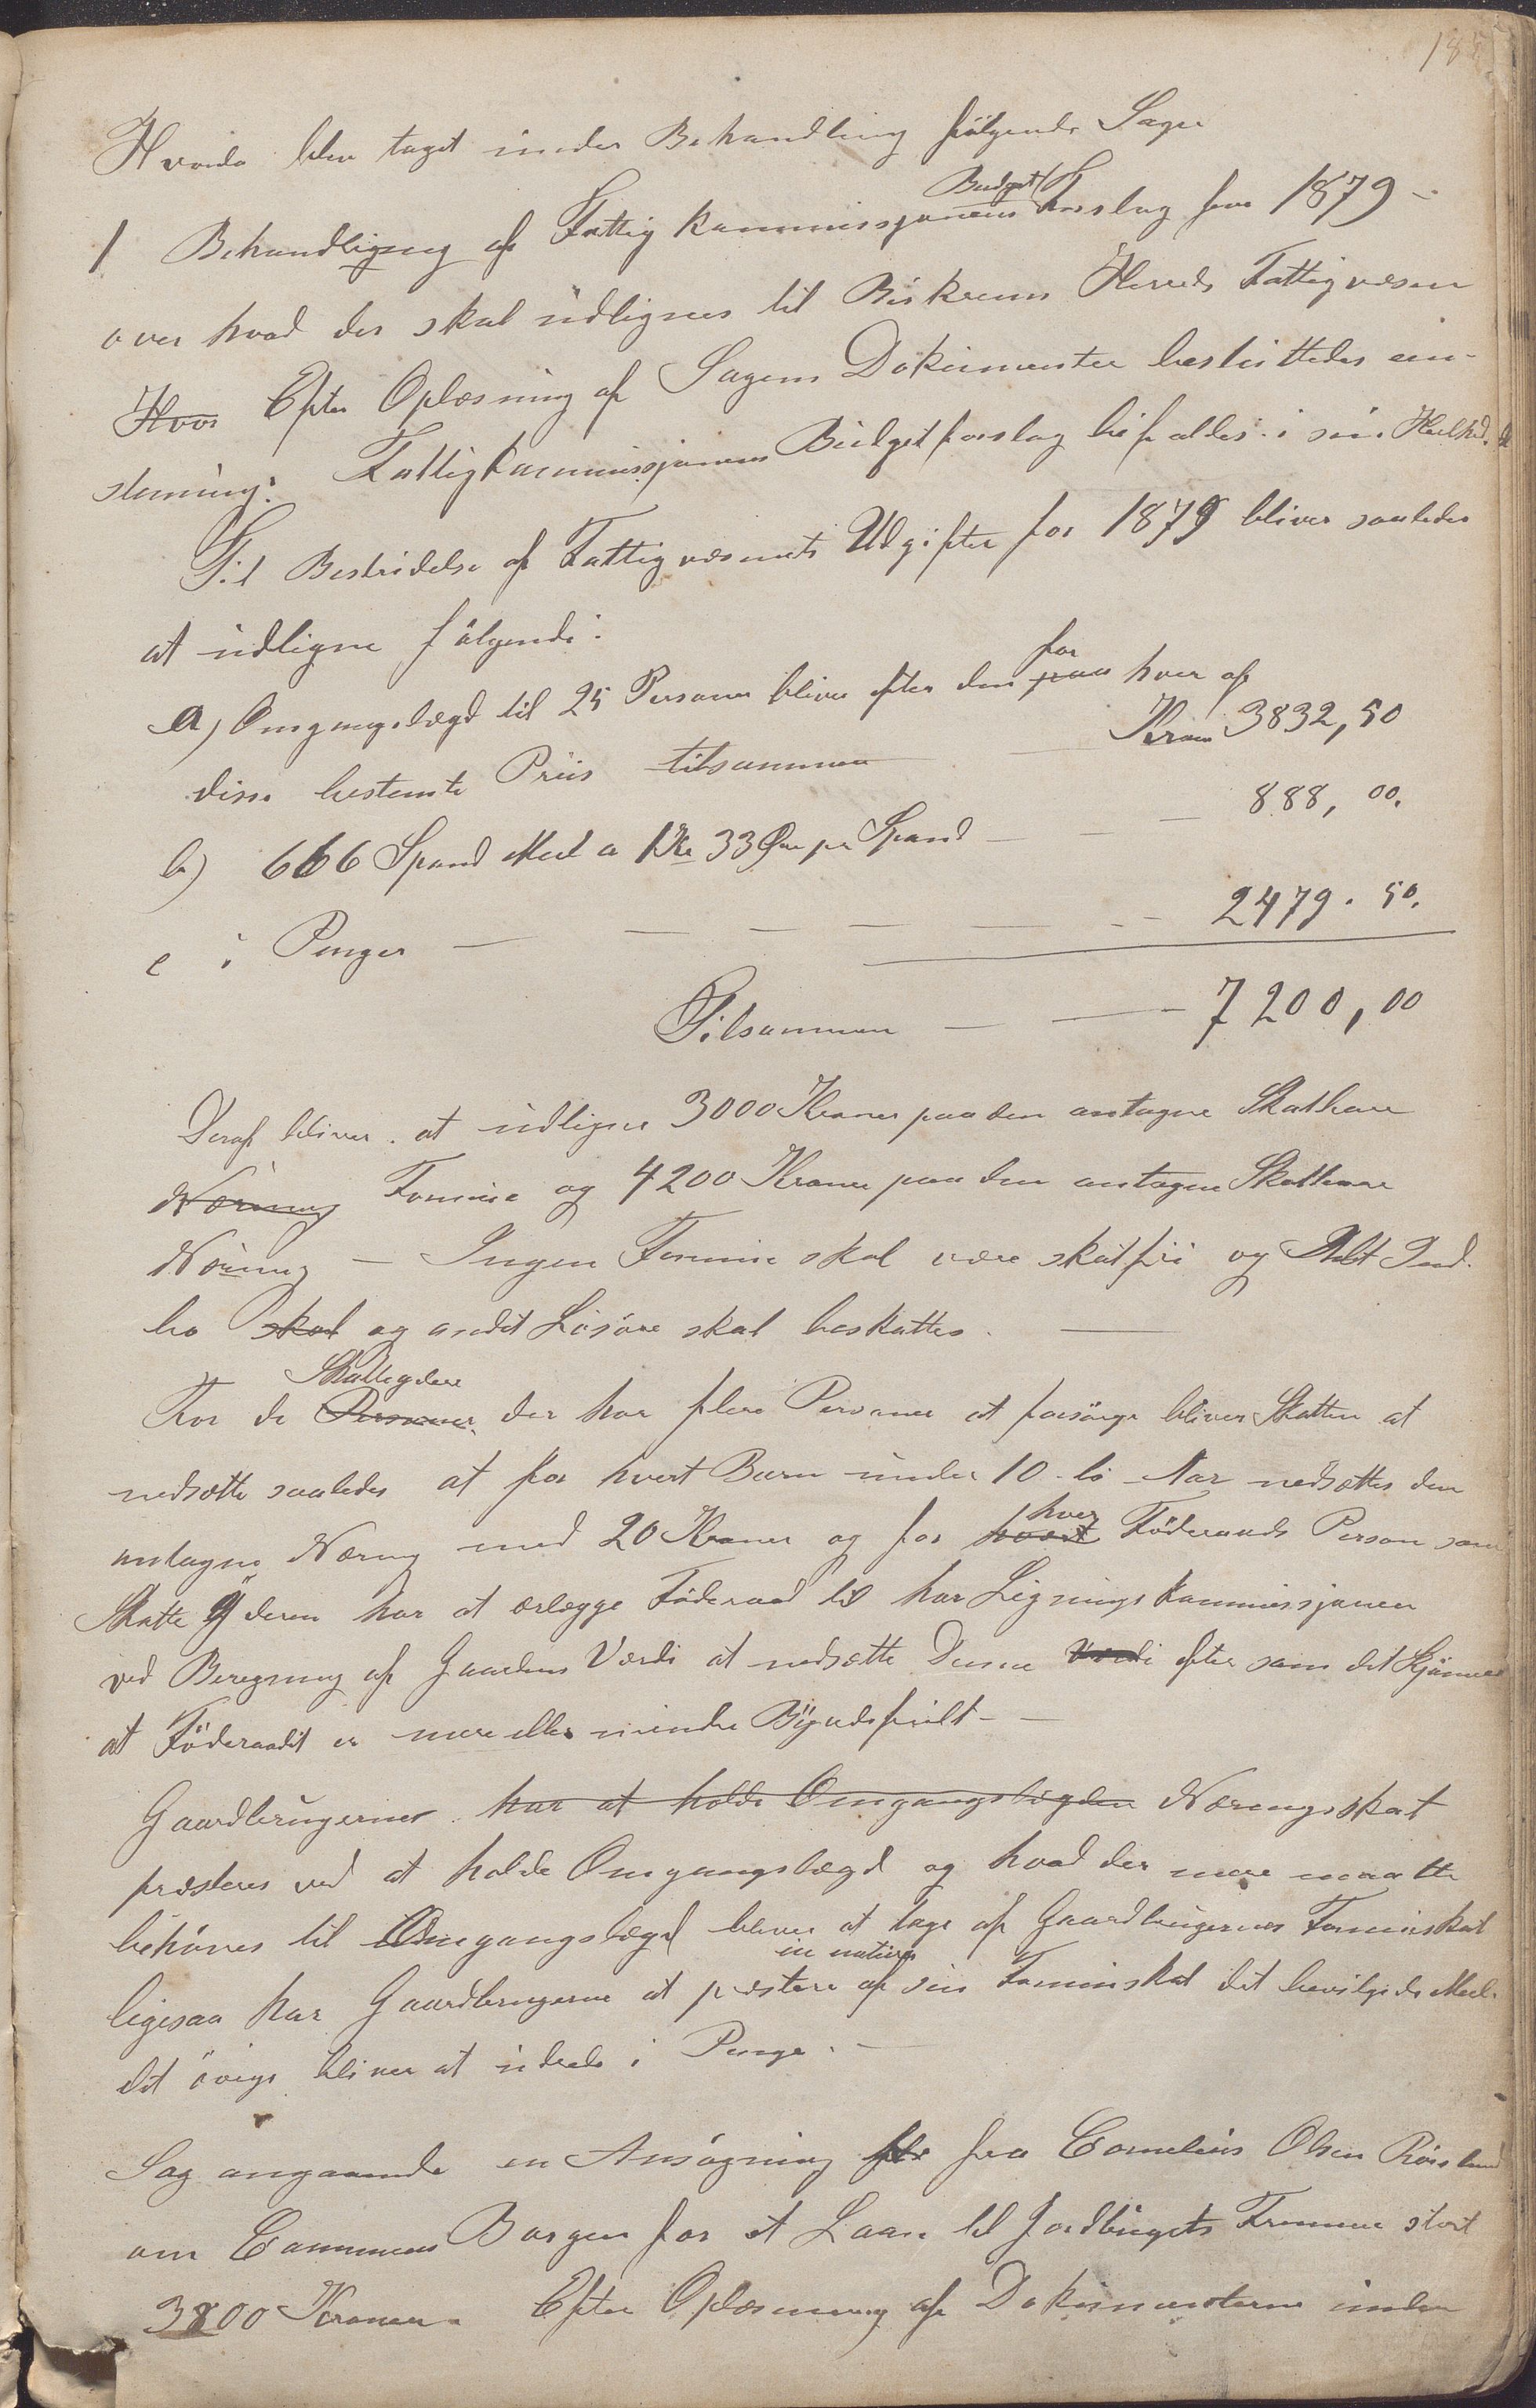 185
Hvorda blev taget under Behandling følgende Sager
1 Behandligng af Fattigkommissjonens Budget Forslag for 1879 -
over hvad der skal udlignes til Birkrems Herreds Fattigvæsen
Hvor Efter Oplæsning af Sagens Dokumenter besluttedes een-
stemmig: Fattigkommissjonens Budgetforslag bifaldes i sin Heelhed.
Til Bestridelse af Fattigvæsnets Udgifter for 1879 bliver saaledes
at udligne følgende:
a) Omgangslægd til 25 Personer bliver efter den for paa hver af
disse bestemte Priis tilsammen Kroner 3832,50
b) 666 Spand Meel a 1 Kr 33 Øre pr Spand - - - 888, 00.
c i Penger - - - - - - 2479. 50.
Tilsammen - - - 7200,00
Deraf bliver at udligne 3000 Kroner paa den antagne Skatbare
Næring Formue og 4200 Kroner paa den antagne Skatbare
Næring - Ingen Formue skal være skatfri og Alt Ind-
bo skal og andet Løsøre skal beskattes. -
For de Personer Skatteydere der har flere Personer at forsørge bliver Skatten at
nedsætte saaledes at for hvert Barn under 10 Aar nedsættes den
antagne Næring med 20 Kroner og for hvert hver Føderaads Person som
Skatte Yderen har at erlægge Føderaad til har Ligningskommissjonen
ved Beregning af Gaardens Værdi at nedsætte Denne Værdi efter som det Skjønnes
at Føderaadet er mere eller mindre Byrdefuldt - -
Gaardbrugernes har at holde Omgangslægden Næringsskat
præsteres ved at holde Omgangslægd og hvad der mere maatte
behøves til Omgangslægd bliver at tage af Gaardbrugernes Formueskat
ligesaa har Gaardbrugerne at præstere in natura af sin Formueskat det bevilgede Meel.
det øvrige bliver at udrede i Penge. -
Sag angaaende en Ansøgning fra Cornelius Olsen Røisland
om Communens Borgen for et Laan til Jordbrugets Fremme stort
3800 Kroner. Efter Oplæsning af Dokumenterne inden